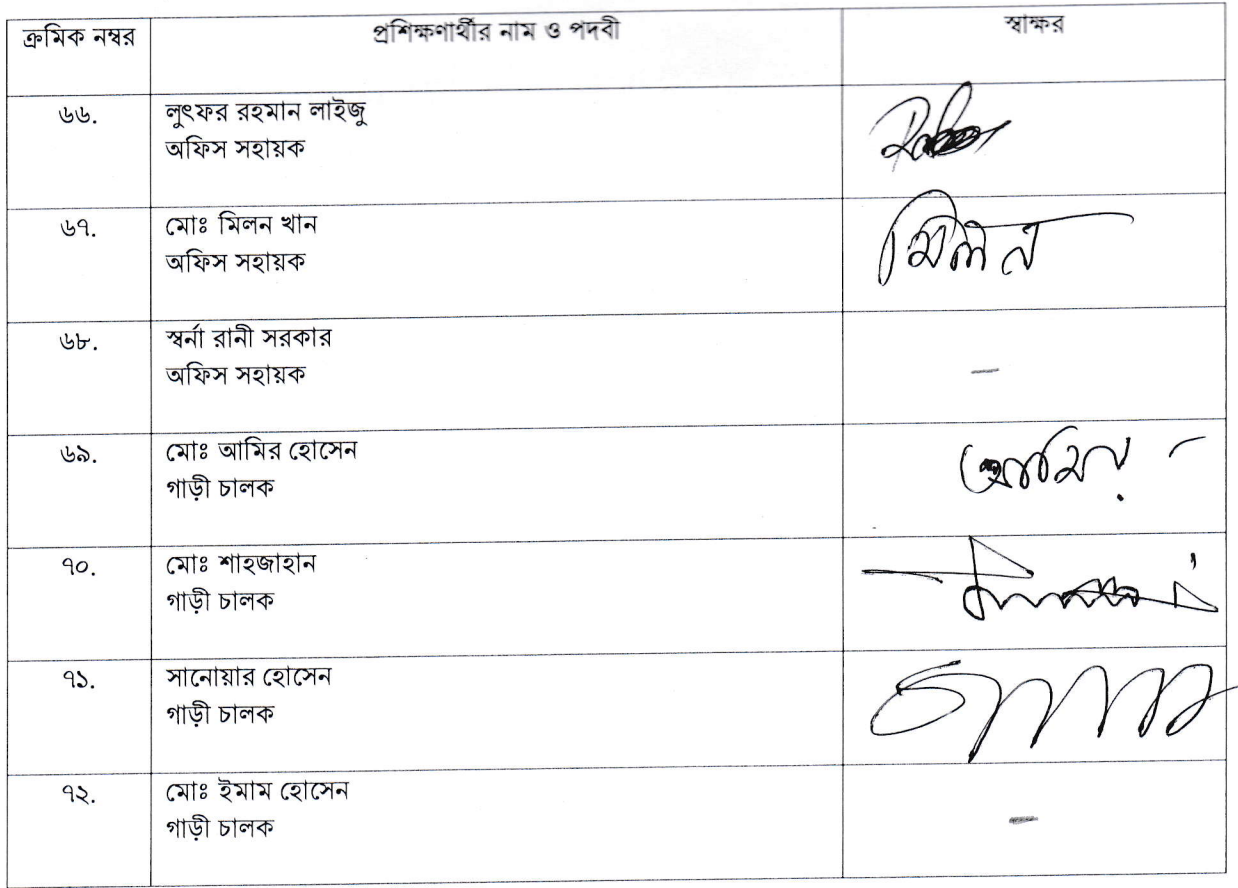 ক্রমিক নম্বর প্রশিক্ষণার্থীর নাম ও পদবী স্বাক্ষর
৬৬. লুৎফর রহমান লাইজু
অফিস সহায়ক
৬৭. মোঃ মিলন খান মিলন
অফিস সহায়ক
৬৮. স্বর্না রানী সরকার
অফিস সহায়ক –
৬৯. মোঃ আমির হোসেন আমির
গাড়ী চালক
৭০. মোঃ শাহজাহান
গাড়ী চালক
৭১. সানোয়ার হোসেন
গাড়ী চালক
৭২. মোঃ ইমাম হোসেন
গাড়ী চালক –